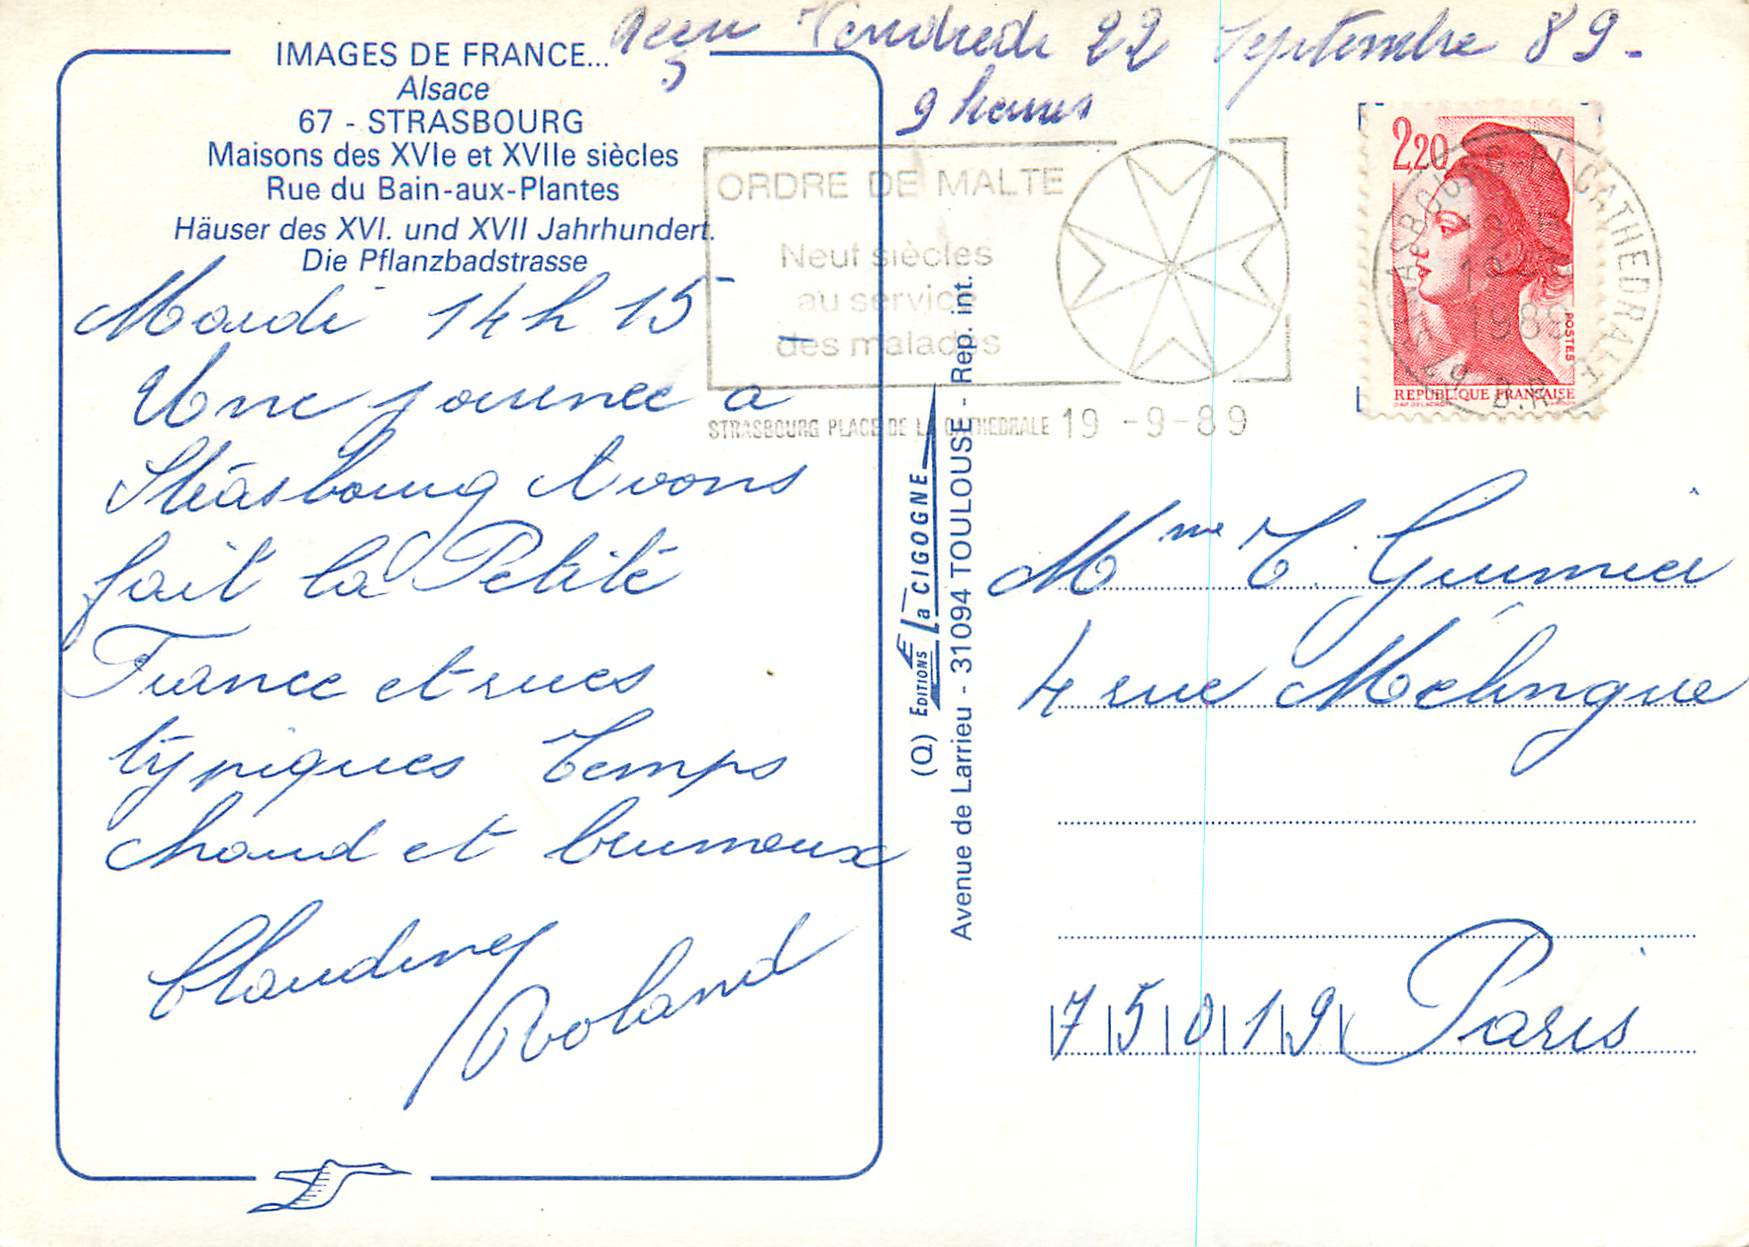 Reçu Vendredi 22 Septembre 89-
9 heures
IMAGES DE FRANCE...
Alsace
67 - STRASBOURG
Maisons des XVIe et XVIIe siècles
Rue du Bain-aux-Plantes
Häuser des XVI. und XVII Jahrhundert.
Die Pflanzbadstrasse
Mardi 14h 15
Une journée a
Strasbourg Avons
fait la Petite
France et rues
typiques Temps
chaud et brumeux
Claudine
Roland
ORDRE DE MALTE
Neuf siècles
au service
des malades
STRASBOURG PLACE DE LA CATHEDRALE 19 -9-89
2,20
POSTES
REPUBLIQUE FRANÇAISE
1989
(Q) EDITIONS La CIGOGNE
Avenue de Larrieu - 31094 TOULOUSE - Rep. int.
Mme T.
4 rue Mélingue
75019 Paris